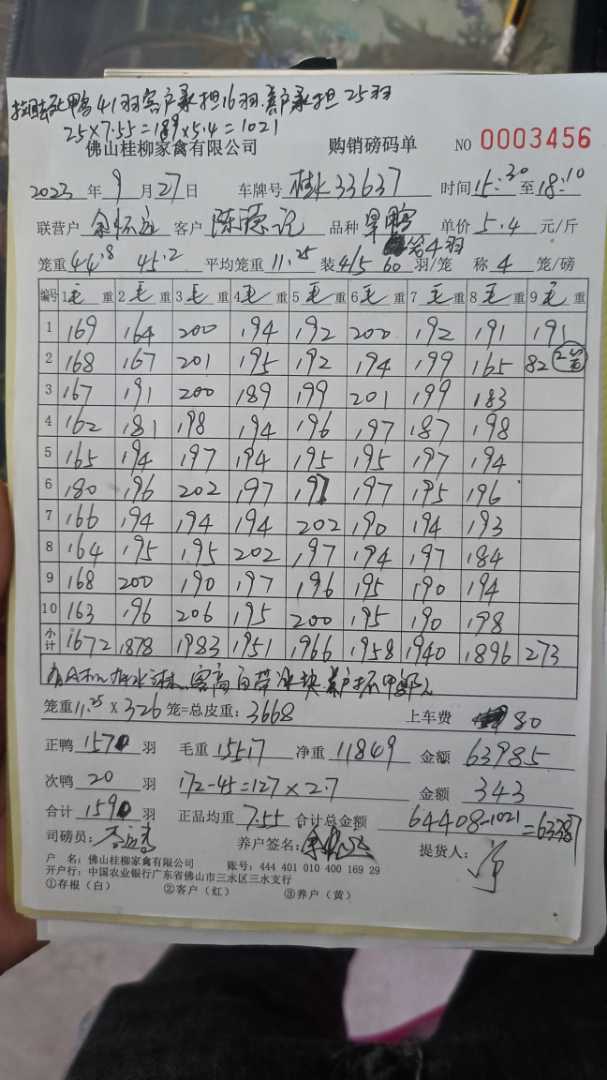 鸭41羽客户承担16羽.养户承担25羽
25×7.55=189×5.4=1021
佛山桂柳家禽有限公司 购销磅码单 NO 0003456
2023年9月27日 车牌号 桂K33637 时间15:30至18:10
联营户 余怀 客户 陈德记 品种 旱鸭 单价5.4元/斤
笼重44.8 45.2 平均笼重11.25 装4/5 60羽/笼 称4笼/磅
编号 1毛重 2毛重 3毛重 4毛重 5毛重 6毛重 7毛重 8毛重 9毛重
1 169 164 200 194 192 200 192 191 191
2 168 167 201 195 192 194 199 165 82 2笼
3 167 191 200 189 199 201 199 183
4 162 181 198 194 196 197 187 198
5 165 194 197 194 195 195 197 194
6 180 196 202 197 197 197 195 196
7 166 194 194 194 202 190 194 193
8 164 195 195 202 197 194 197 184
9 168 200 190 197 196 195 190 194
10 163 196 206 195 200 195 190 198
小计 1672 1878 1983 1951 1966 1958 1940 1896 273
笼重11.25×326笼=总皮重:3668 上车费 80
正鸭1570羽 毛重15517 净重11849 金额63985
次鸭20羽 172-45=127×2.7 金额343
合计1590羽 正品均重7.55 合计总金额64408-1021=63387
司磅员: 养户签名: 提货人:
户 名:佛山桂柳家禽有限公司 账号:444 401 010 400 169 29
开户行:中国农业银行广东省佛山市三水区三水支行
①存根(白) ②客户(红) ③养户(黄)